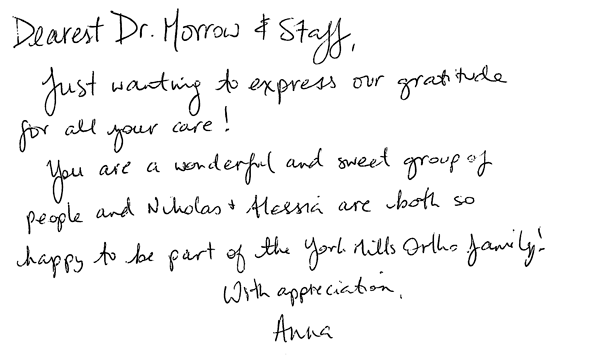 Dearest Dr. Morrow & Staff,
Just wanting to express our gratitude
for all your care!
You are a wonderful and sweet group of
people and Nikolas + Alessia are both so
happy to be part of the York Mills Ortho family!
With appreciation,
Anna